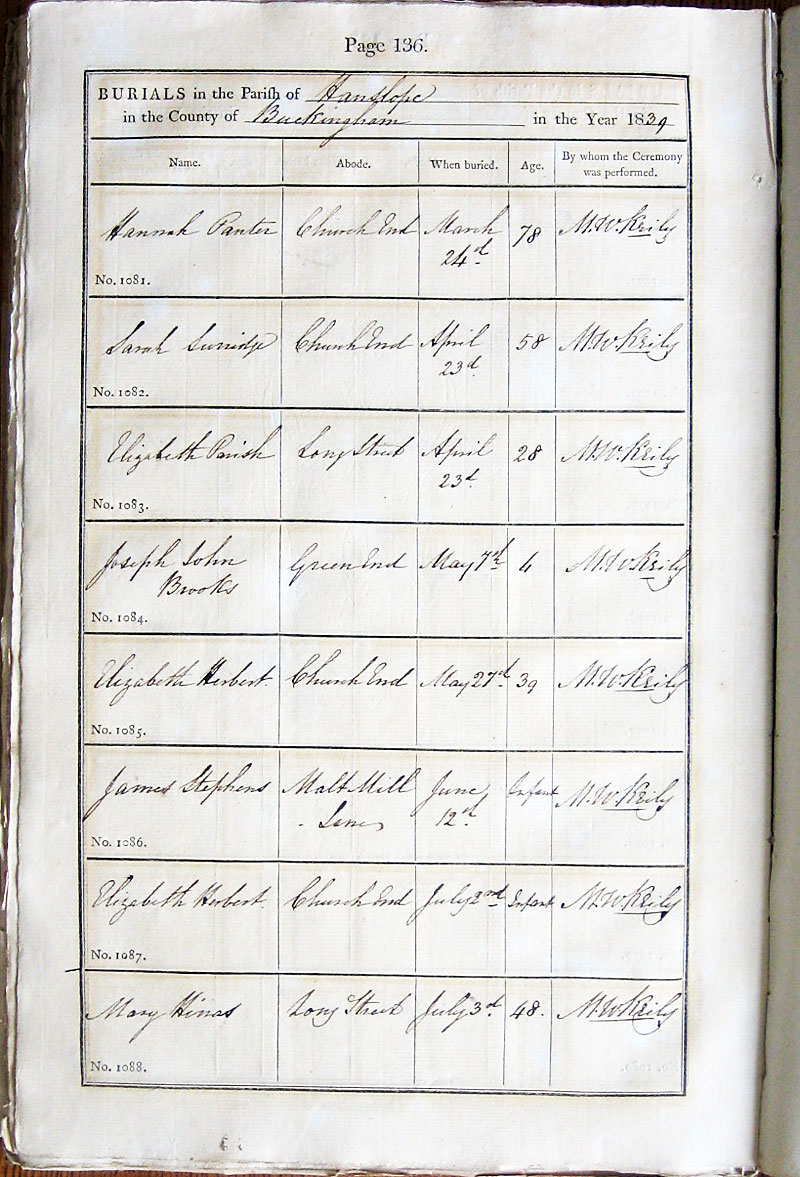 Page 136.
BURIALS in the Parish of Hanslope
in the County of Buckingham in the Year 1839
Name. Abode. When buried. Age. By whom the Ceremony
was performed.
Hannah Panter Church End March 78 M.W. Keily
24d
No. 1081.
Sarah Surridge Church End April 58 M.W. Keily
23d
No. 1082.
Elizabeth Parish Long Street April 28 M.W. Keily
23d
No. 1083.
Joseph John Green End May 7th M.W. Keily
Brooks
No. 1084.
Elizabeth Herbert. Church End May 27d 39 M.W. Keily
No. 1085.
James Stephens Malt Mill June Infant M.W. Keily
- Lane 12d
No. 1086.
Elizabeth Herbert. Church End July 2nd Infant M.W. Keily
No. 1087.
Mary Long Street July 3d 48. M.W. Keily
No. 1088.